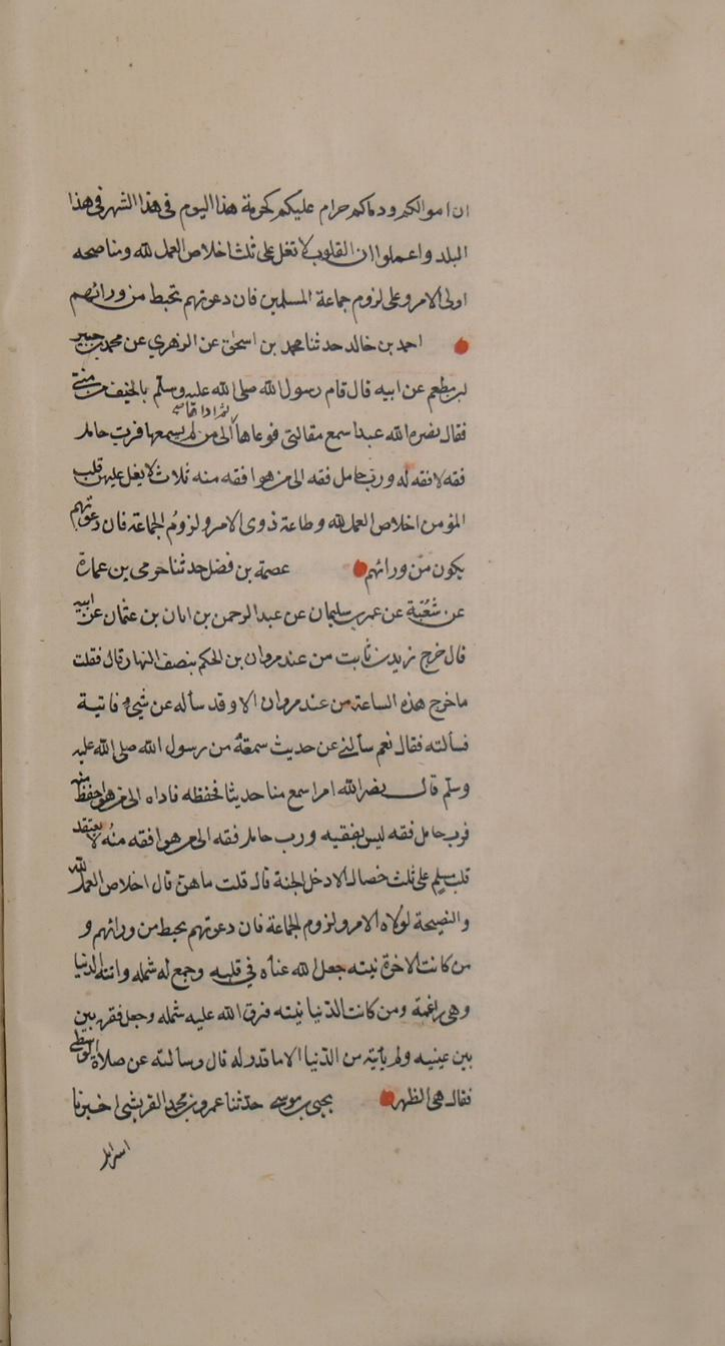 ان اموالكم ودماكم حرام عليكم كحرمة هذا اليوم فى هذا الشهر فى هذا
البلد واعملوا ان القلوب لا تغل على ثلث اخلاص العمل لله ومناصحه
اولى الامر وعلى لزوم جماعة المسلمين فان دعوتهم تحبط من ورائهم
احمد بن خالد حدثنا محمد بن اسحق عن الزهري عن محمد بن جبير
بن مطعم عن ابيه قال قام رسول الله صلى الله عليه وسلم بالخيف من منى
ثم اداها
فقال نضر الله عبدا سمع مقالتى فوعاها الى من لم يسمعها فرب حامل
فقه لا فقه له ورب حامل فقه الى من هو افقه منه ثلاث لا يغل عليهن قلب
المؤمن اخلاص العمل لله وطاعة ذوى الامر ولزوم الجماعة فان دعوتهم
يكون من ورائهم عصمة بن فضل حدثنا حرمى بن عمارة
عن شعبة عن عمر بن سليمان عن عبد الرحمن بن ابان بن عثمان عن ابيه
قال خرج زيد بن ثابت من عند مروان بن الحكم بنصف النهار قال فقلت
ما خرج هذه الساعة من عند مروان الا وقد سأله عن شيء فاتيته
فسألته فقال نعم سألنى عن حديث سمعته من رسول الله صلى الله عليه
وسلم قال نضر الله امرا سمع منا حديثا فحفظه فاداه الى من هو احفظ منه
فرب حامل فقه ليس بفقيه ورب حامل فقه الى من هو افقه منه لا يعتقد
قلب مسلم على ثلث خصال الا دخل الجنة قال قلت ما هن قال اخلاص العمل لله
والنصيحة لولاه الامر ولزوم الجماعة فان دعوتهم يحبط من ورائهم و
من كانت الاخرة نيته جعل الله عناه في قلبه وجمع له شمله واتته الدنيا
وهى راغمة ومن كانت الدنيا نيته فرق الله عليه شمله وجعل فقره بين
بين عينيه ولم يأته من الدنيا الا ما قدر له قال وسألته عن صلاة الوسطى
فقال هى الظهر يحيى بن موسى حدثنا عمرو بن محمد القريشى اخبرنا
اسرايل